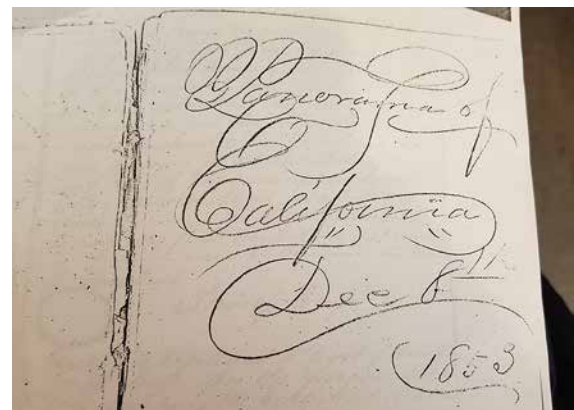 Panorama of
California
Dec 8th
1853